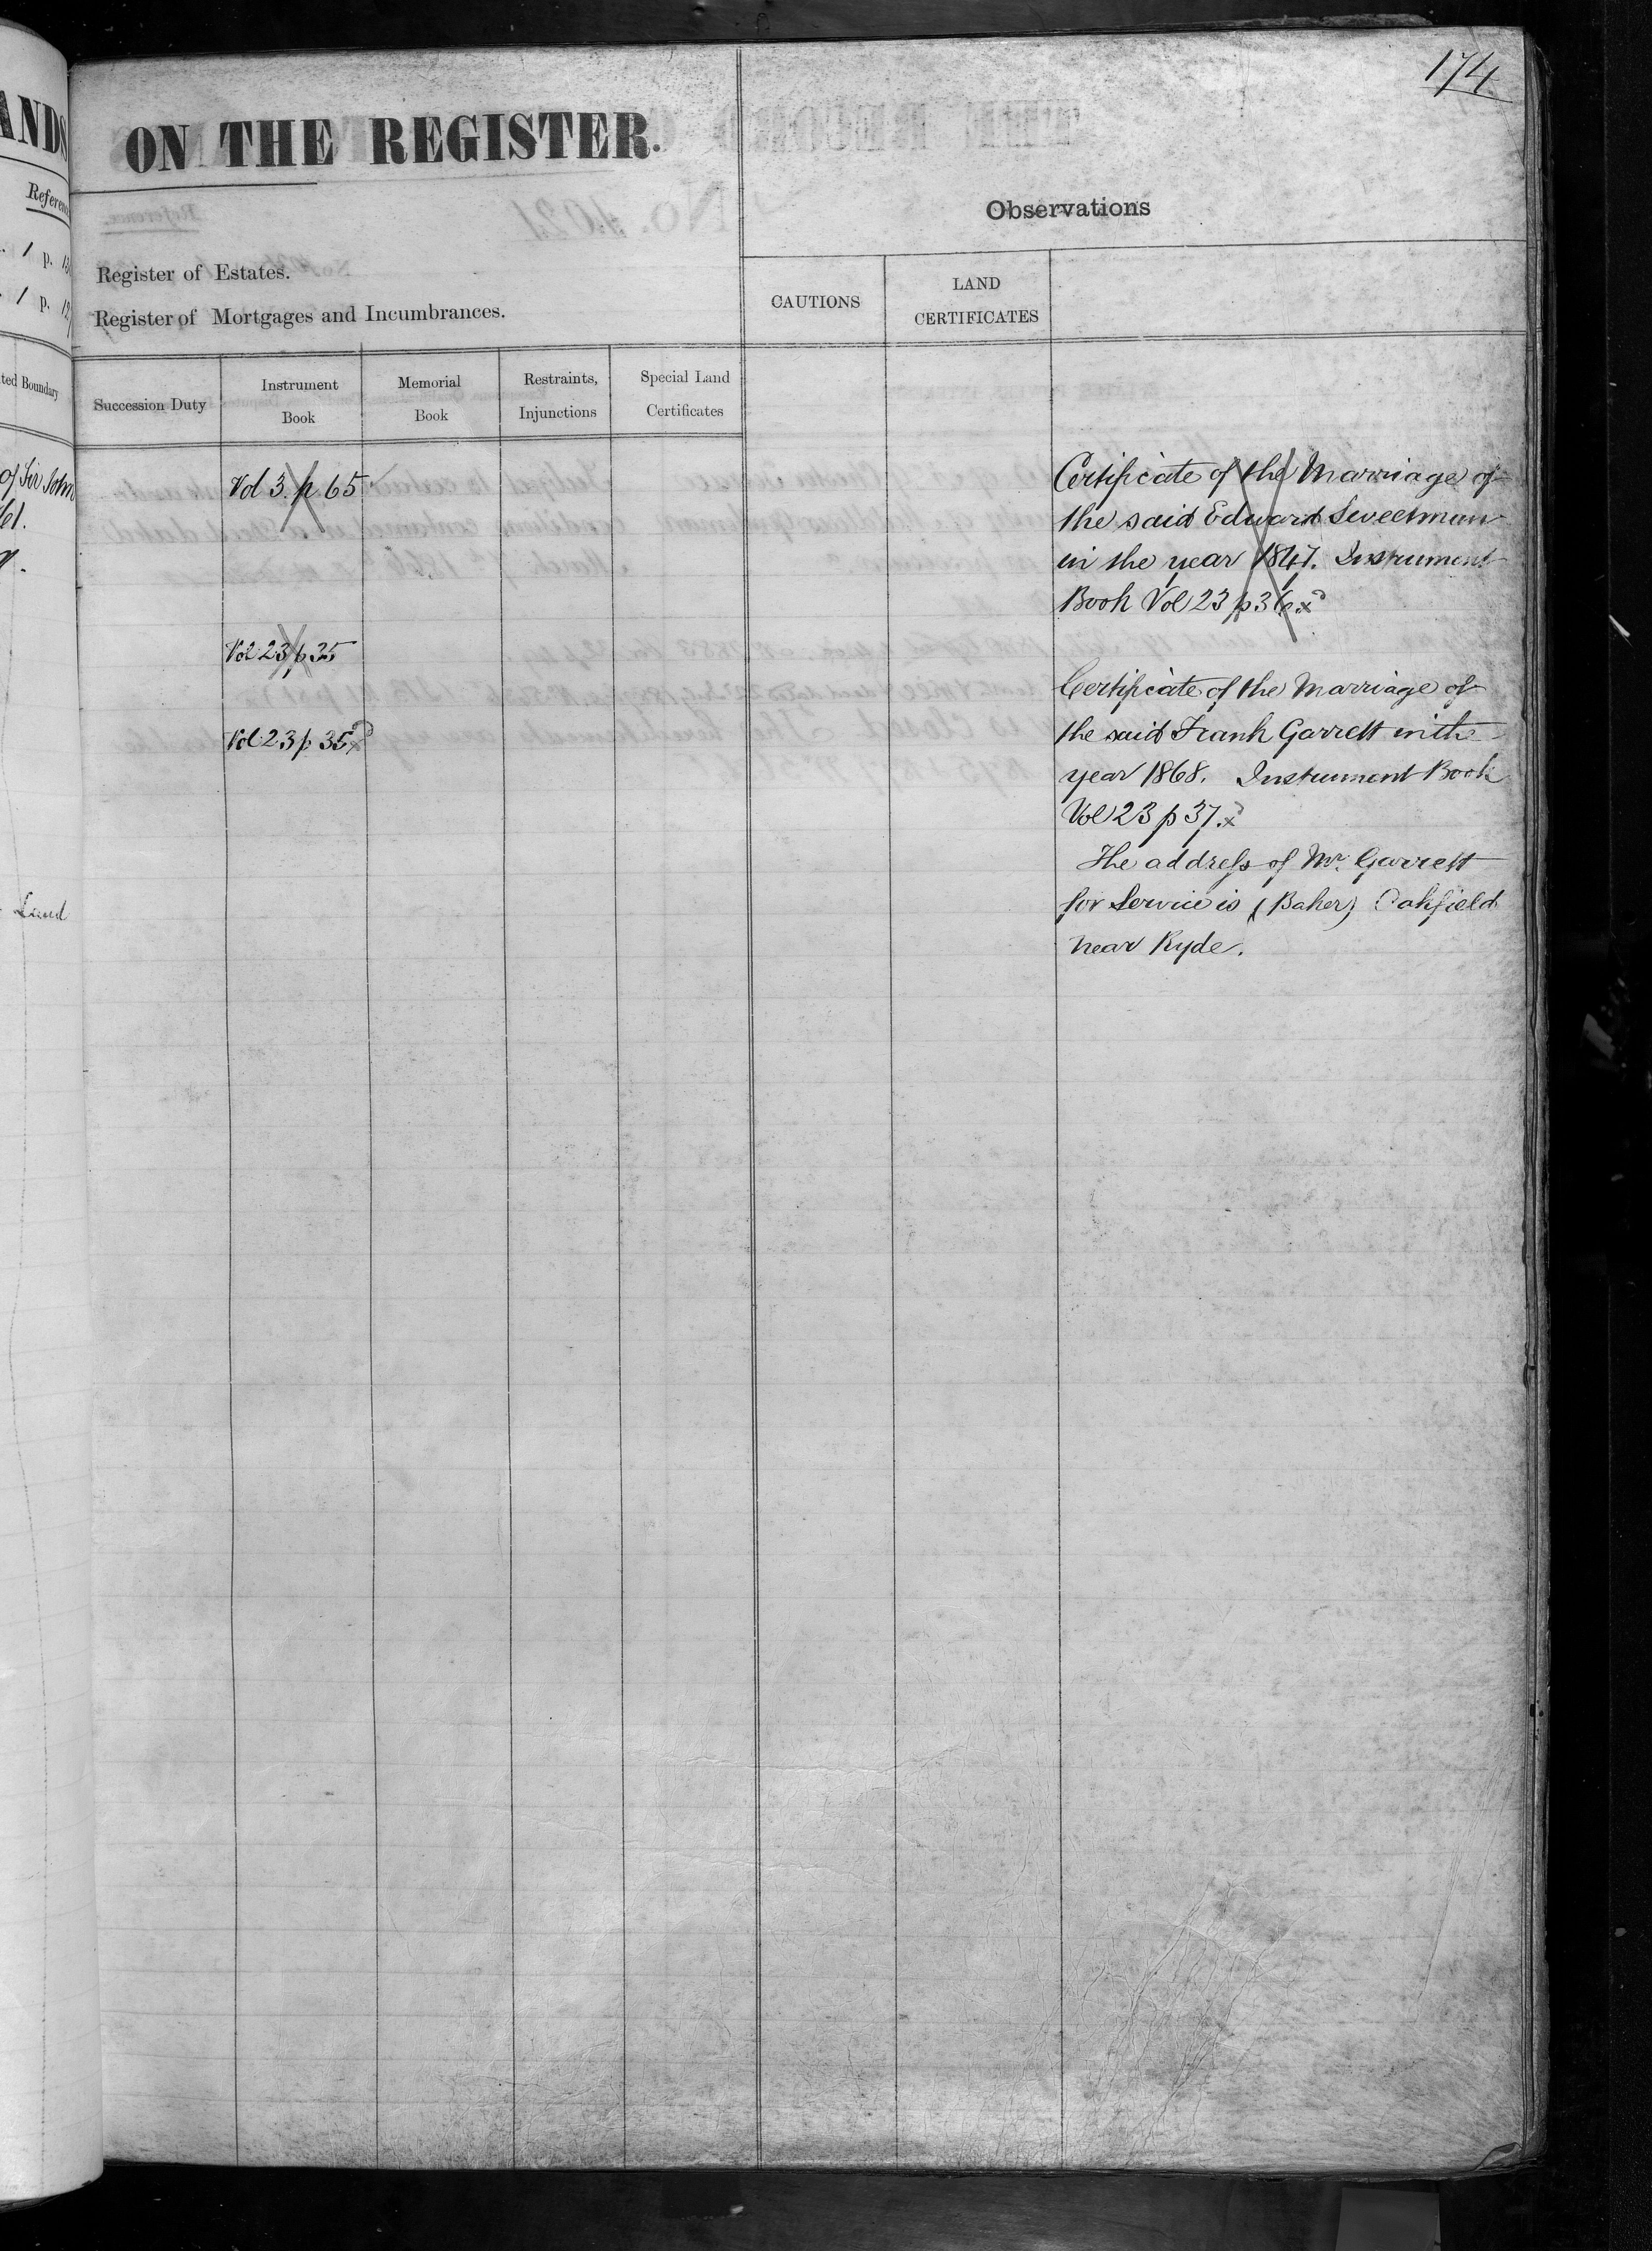 174
ANDS
ON THE REGISTER.
Observations
1 p.
1 p.
Register of Estates.
Register of Mortgages and Incumbrances.
CAUTIONS
LAND
CERTIFICATES
ted Boundary
Succession Duty
Instrument
Book
Memorial
Book
Restraints,
Injunctions
Special Land
Certificates
of Sir John
Vol 3. p. 65
Certificate of the Marriage of
the said Edward Sweetman
in the year 1847. Instrument
Book Vol 23 p 36
Vol 23 p 35
Certificate of the Marriage of
Vol 23 p 35
the said Frank Garrett in the
year 1868. Instrument Book
Vol 23 p 37.
The address of Mr. Garrett
for Service is (Baker) Oakfield
near Ryde.
Land